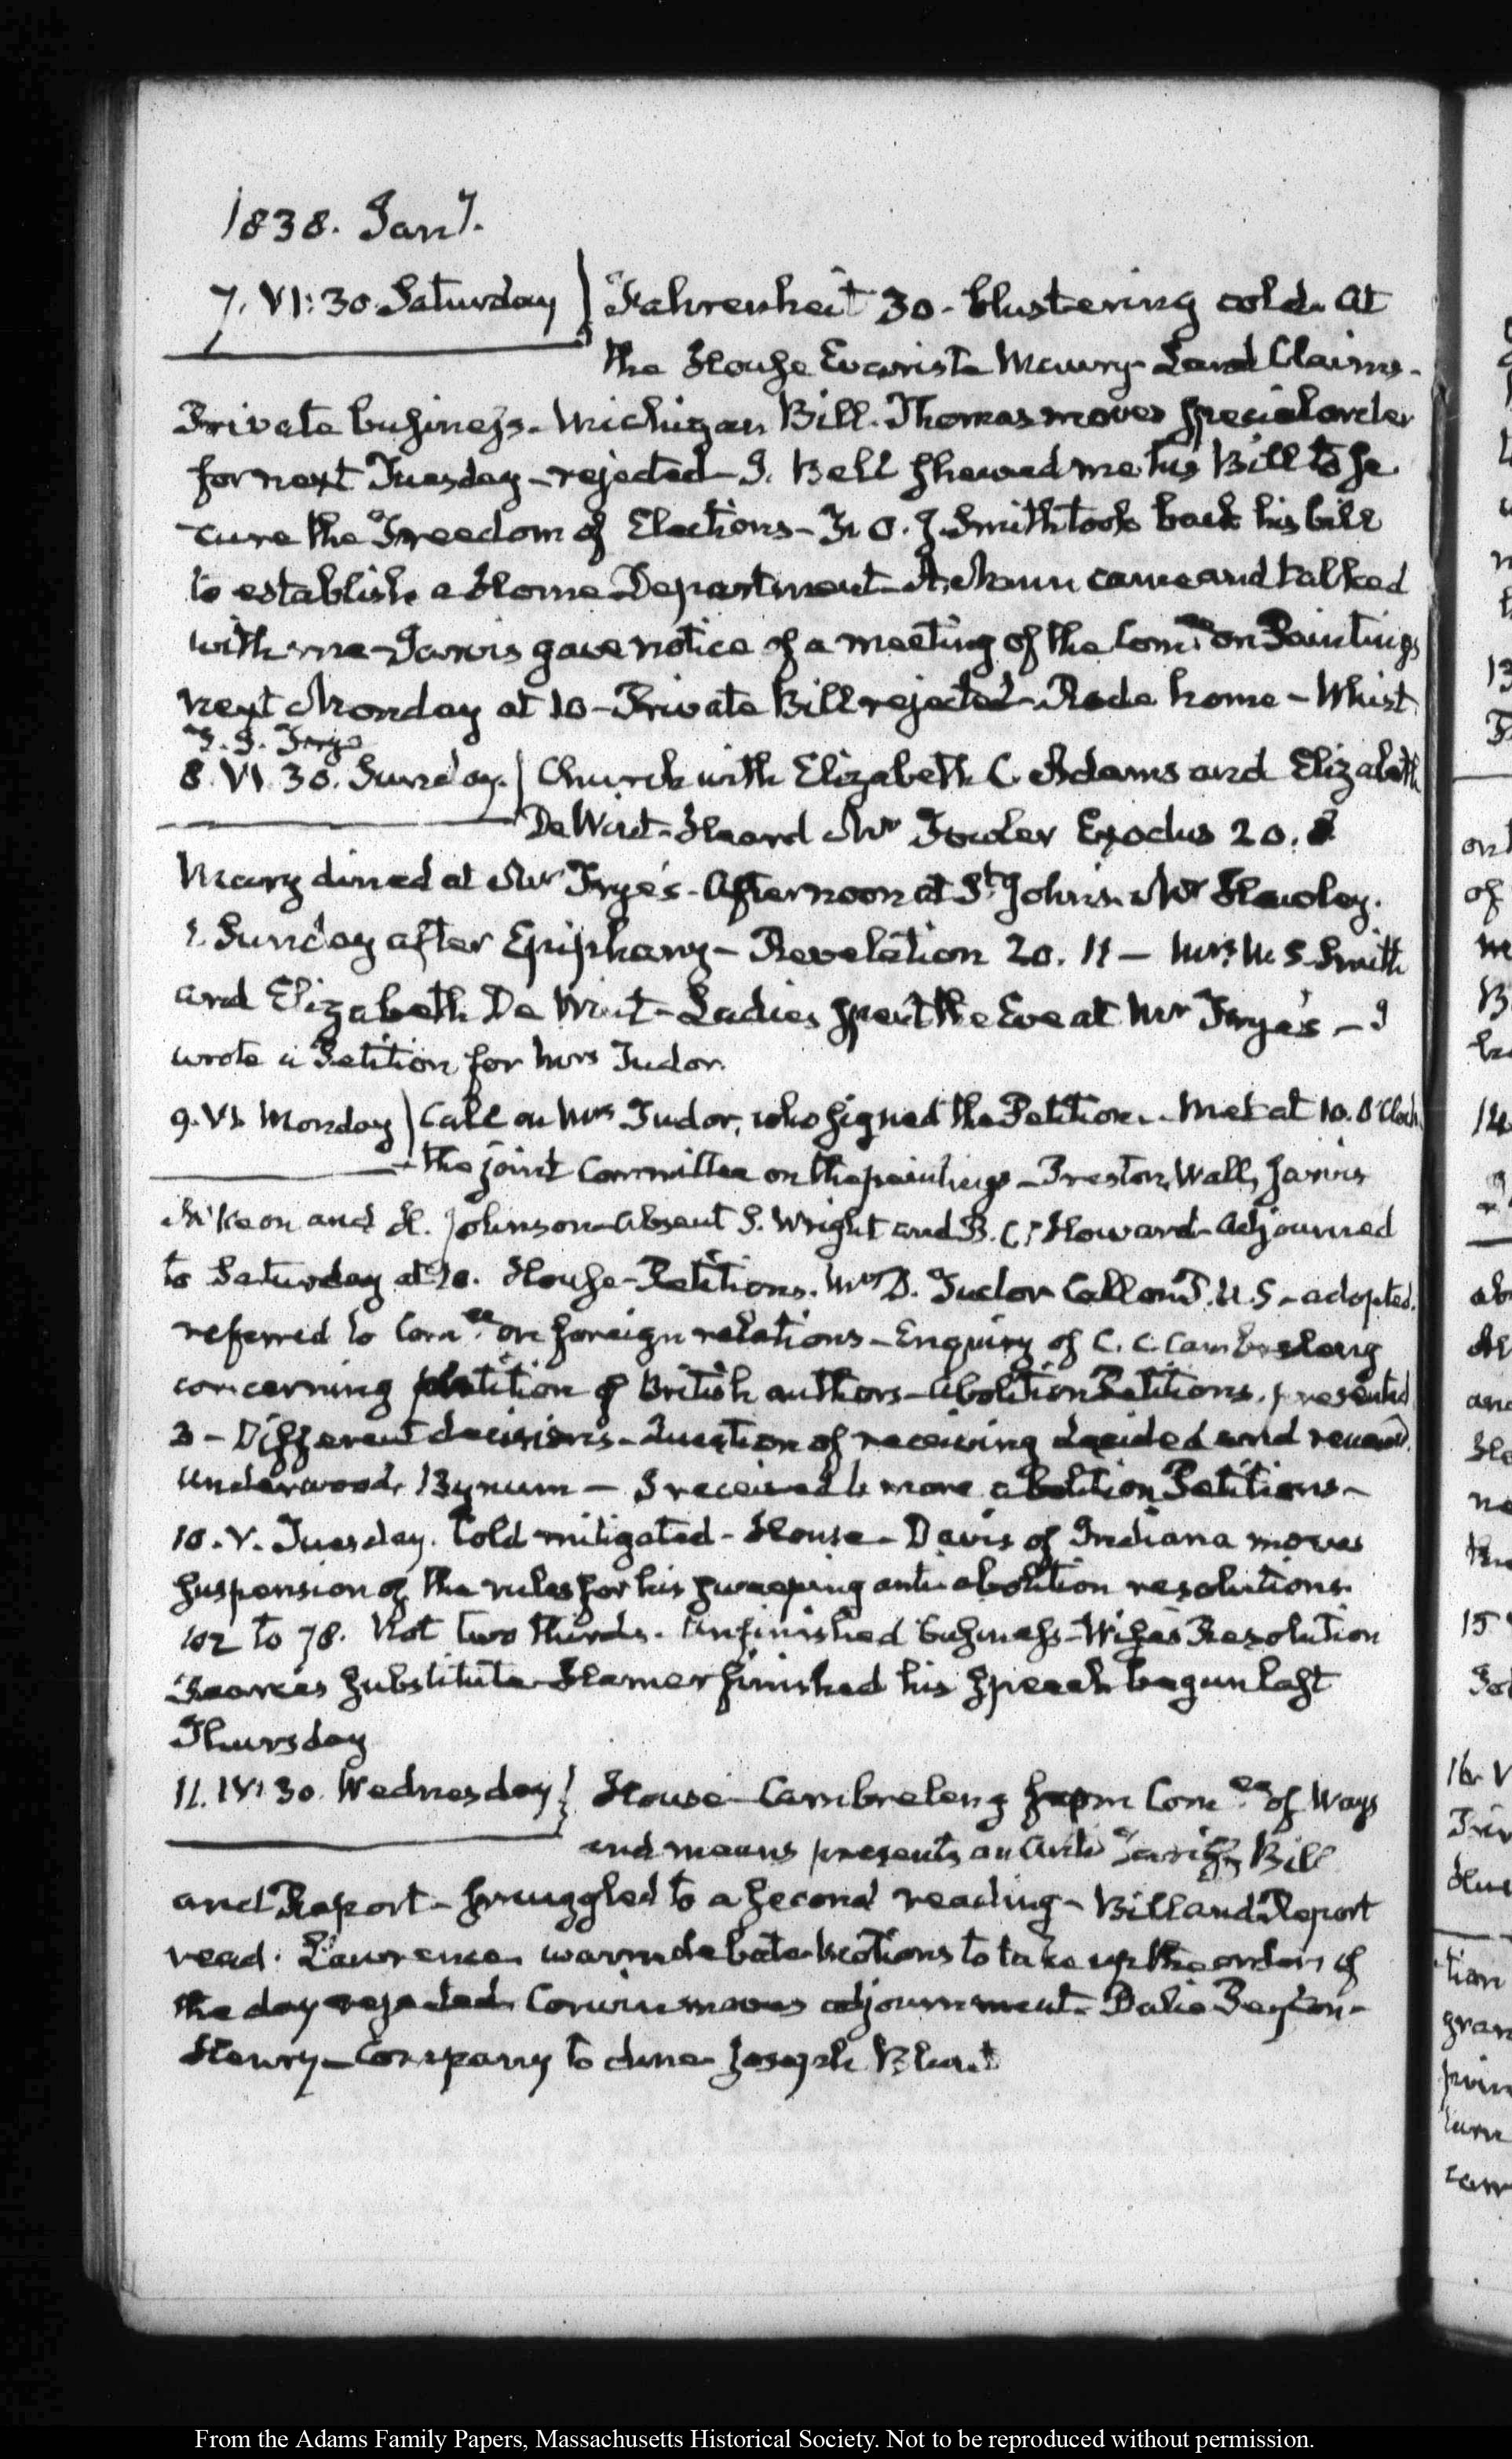 1838. Jany.
7. VI:30. Saturday } Fahrenheit 30. blustering cold. At
the House Evariste Maury. Land Claims.
Private business. Michigan Bill. Thomas moves special order
for next Tuesday – rejected – J. Bell shewed me his Bill to se
cure the Freedom of Elections – F. O. J. Smith took back his bill
to establish a Home Department – A. Mann came and talked
with me – Jarvis gave notice of a meeting of the Comee. on Paintings
next Monday at 10 – Private Bill rejected – Rode home – Whist
T. J. Frye
8. VI.30. Sunday. } Church with Elizabeth C. Adams and Elizabeth
De Wint – Heard Mr Fowler Exodus 20.
Mary dined at Mr Frye's – Afternoon at St. John's. Mr Hawley.
1. Sunday after Epiphany – Revelation 20. 11 – Mrs. W S Smith
and Elizabeth De Wint – Ladies spent the Eve at Mr Frye's – I
wrote a Petition for Mrs Tudor.
9. VI. Monday } Call on Mrs Tudor, who signed the Petition. Met at 10. O'Clock
the joint Committee on the paintings – Preston, Wall, Jarvis
McKeon and H. Johnson – absent S. Wright and B. C. Howard – Adjourned
to Saturday at 10. House – Petitions. Mrs D. Tudor Call on P. U.S – adopted.
referred to Comee. on foreign relations – Enquiry of C. C. Cambreleng
concerning petition of British authors – Abolition Petitions. presented
3 – Different decisions – Question of receiving decided and renewed.
Underwood, Bynum – I received 4 more abolition Petitions –
10. V. Tuesday. Cold mitigated – House – Davis of Indiana moves
suspension of the rules for his sweeping anti abolition resolutions.
102 to 78. Not two thirds. Unfinished business – Wise's Resolution
Pearce's substitute Hamer finished his speech begun last
Thursday
11. IV:30. Wednesday } House – Cambreleng from Comee. of Ways
and means presents an Anti Tariff Bill
and Report – smuggled to a second reading – Bill and Report
read. Lawrence. warm debate. Motions to take up the orders of
the day rejected. Corwin moves adjournment – Balie Peyton –
Henry – Company to dine Joseph Blunt
From the Adams Family Papers, Massachusetts Historical Society. Not to be reproduced without permission.